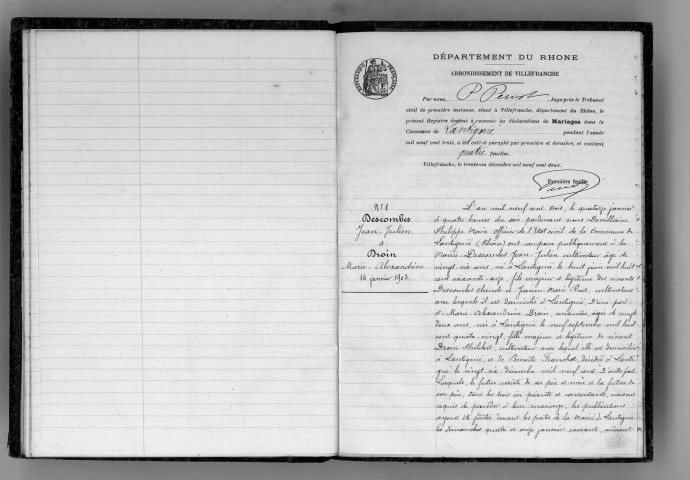 DÉPARTEMENT DU RHONE
ARRONDISSEMENT DE VILLEFRANCHE
Par nous, P. Perrot, Juge près le Tribunal
civil de première instance, séant à Villefranche, département du Rhône, le
présent Registre destiné à recevoir les déclarations de Mariages dans la
Commune de Lantignié pendant l'année
mil neuf cent trois, a été coté et paraphé par première et dernière, et contient
quatre feuilles.
Villefranche, le trente-un décembre mil neuf cent deux.
Première feuille
N° 1
Descombes
Jean-Julien
et
Broin
Marie-Alexandrine
14 janvier 1903.
L'an mil neuf cent trois, le quatorze janvier
à quatre heures du soir pardevant nous
Philippe Maire officier de l'Etat civil de la Commune de
Lantignié (Rhône) ont comparu publiquement à la
Mairie Descombes Jean-Julien cultivateur âgé de
vingt six ans, né à Lantignié le huit juin mil huit
cent soixante seize, fils majeur et légitime des vivants
Descombes Claude et Jeanne-Marie, cultivateurs
avec lesquels il est domicilié à Lantignié, D'une part.
et Marie-Alexandrine Broin, âgée de vingt
deux ans, née à Lantignié le neuf septembre mil huit
cent quatre-vingt, fille majeure et légitime de vivant
Broin Philibert, cultivateur avec lequel elle est domiciliée
à Lantignié, et de Benoîte, décédée à Lanti-
gnié le vingt six décembre mil neuf cent. D'autre part.
Lesquels, le futur assisté de ses père et mère et la future de
son père, tous les trois ici présents et consentants, nous ont
requis de procéder à leur mariage, les publications
ayant été faites devant la porte de la Mairie de Lantignié
les dimanches quatre et onze janvier courant, suivant